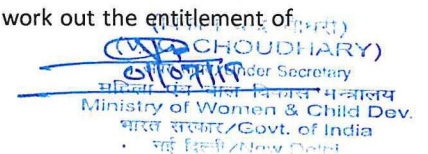 work out the entitlement of
CHOUDHARY)
Under Secretary
महिला एवं बाल विकास मन्त्रालय
Ministry of Women & Child Dev.
भारत सरकार/Govt. of India
नई दिल्ली/New Delhi